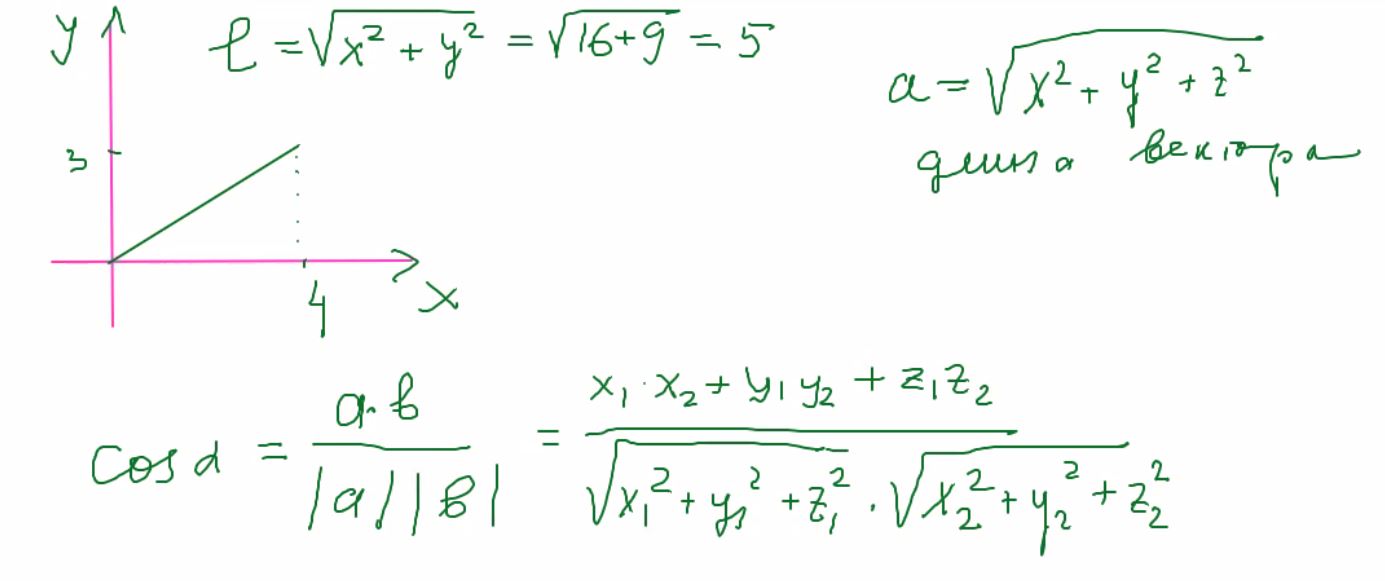 y
ℓ = √(x² + y²) = √(16+9) = 5
a = √(x² + y² + z²)
длина вектора
3
4
x
cos α = (a·b)/(|a||b|) = (x₁·x₂ + y₁y₂ + z₁z₂)/(√(x₁² + y₁² + z₁²) · √(x₂² + y₂² + z₂²))